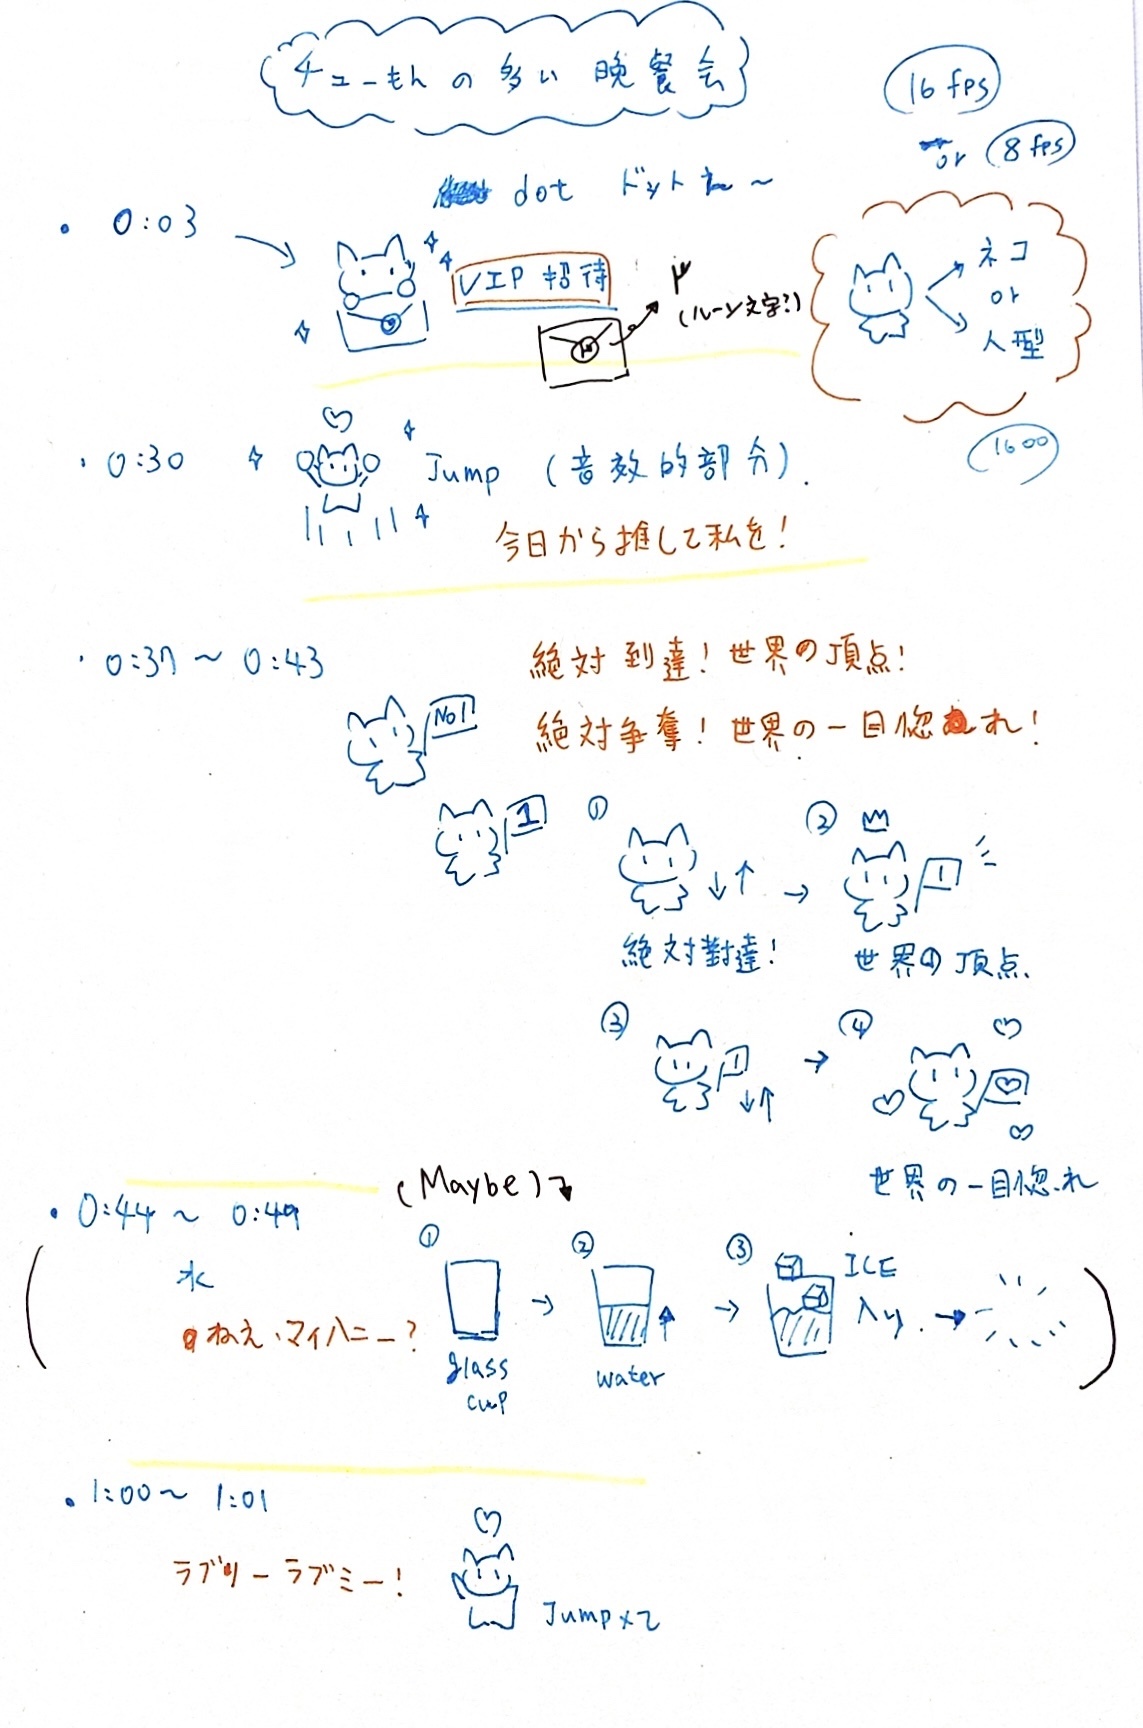 チューもんの多い晩餐会
16 fps
or 8 fps
dot ドット
0:03
VIP 招待
(ルーン文字?)
ネコ
or
人型
1600
0:30
Jump (音效的部分).
今日から推して私を!
0:37 ~ 0:43
絶対到達!世界の頂点!
No1
絶対争奪!世界の一目惚れ!
1
①
②
1
絶対對達!
世界の頂点.
③
1
④
世界の一目惚れ
(Maybe)
0:44 ~ 0:49
水
ねえ、マイハニー?
①
glass
cup
②
water
③
ICE
入り.
1:00~ 1:01
ラブリーラブミー!
Jump×2